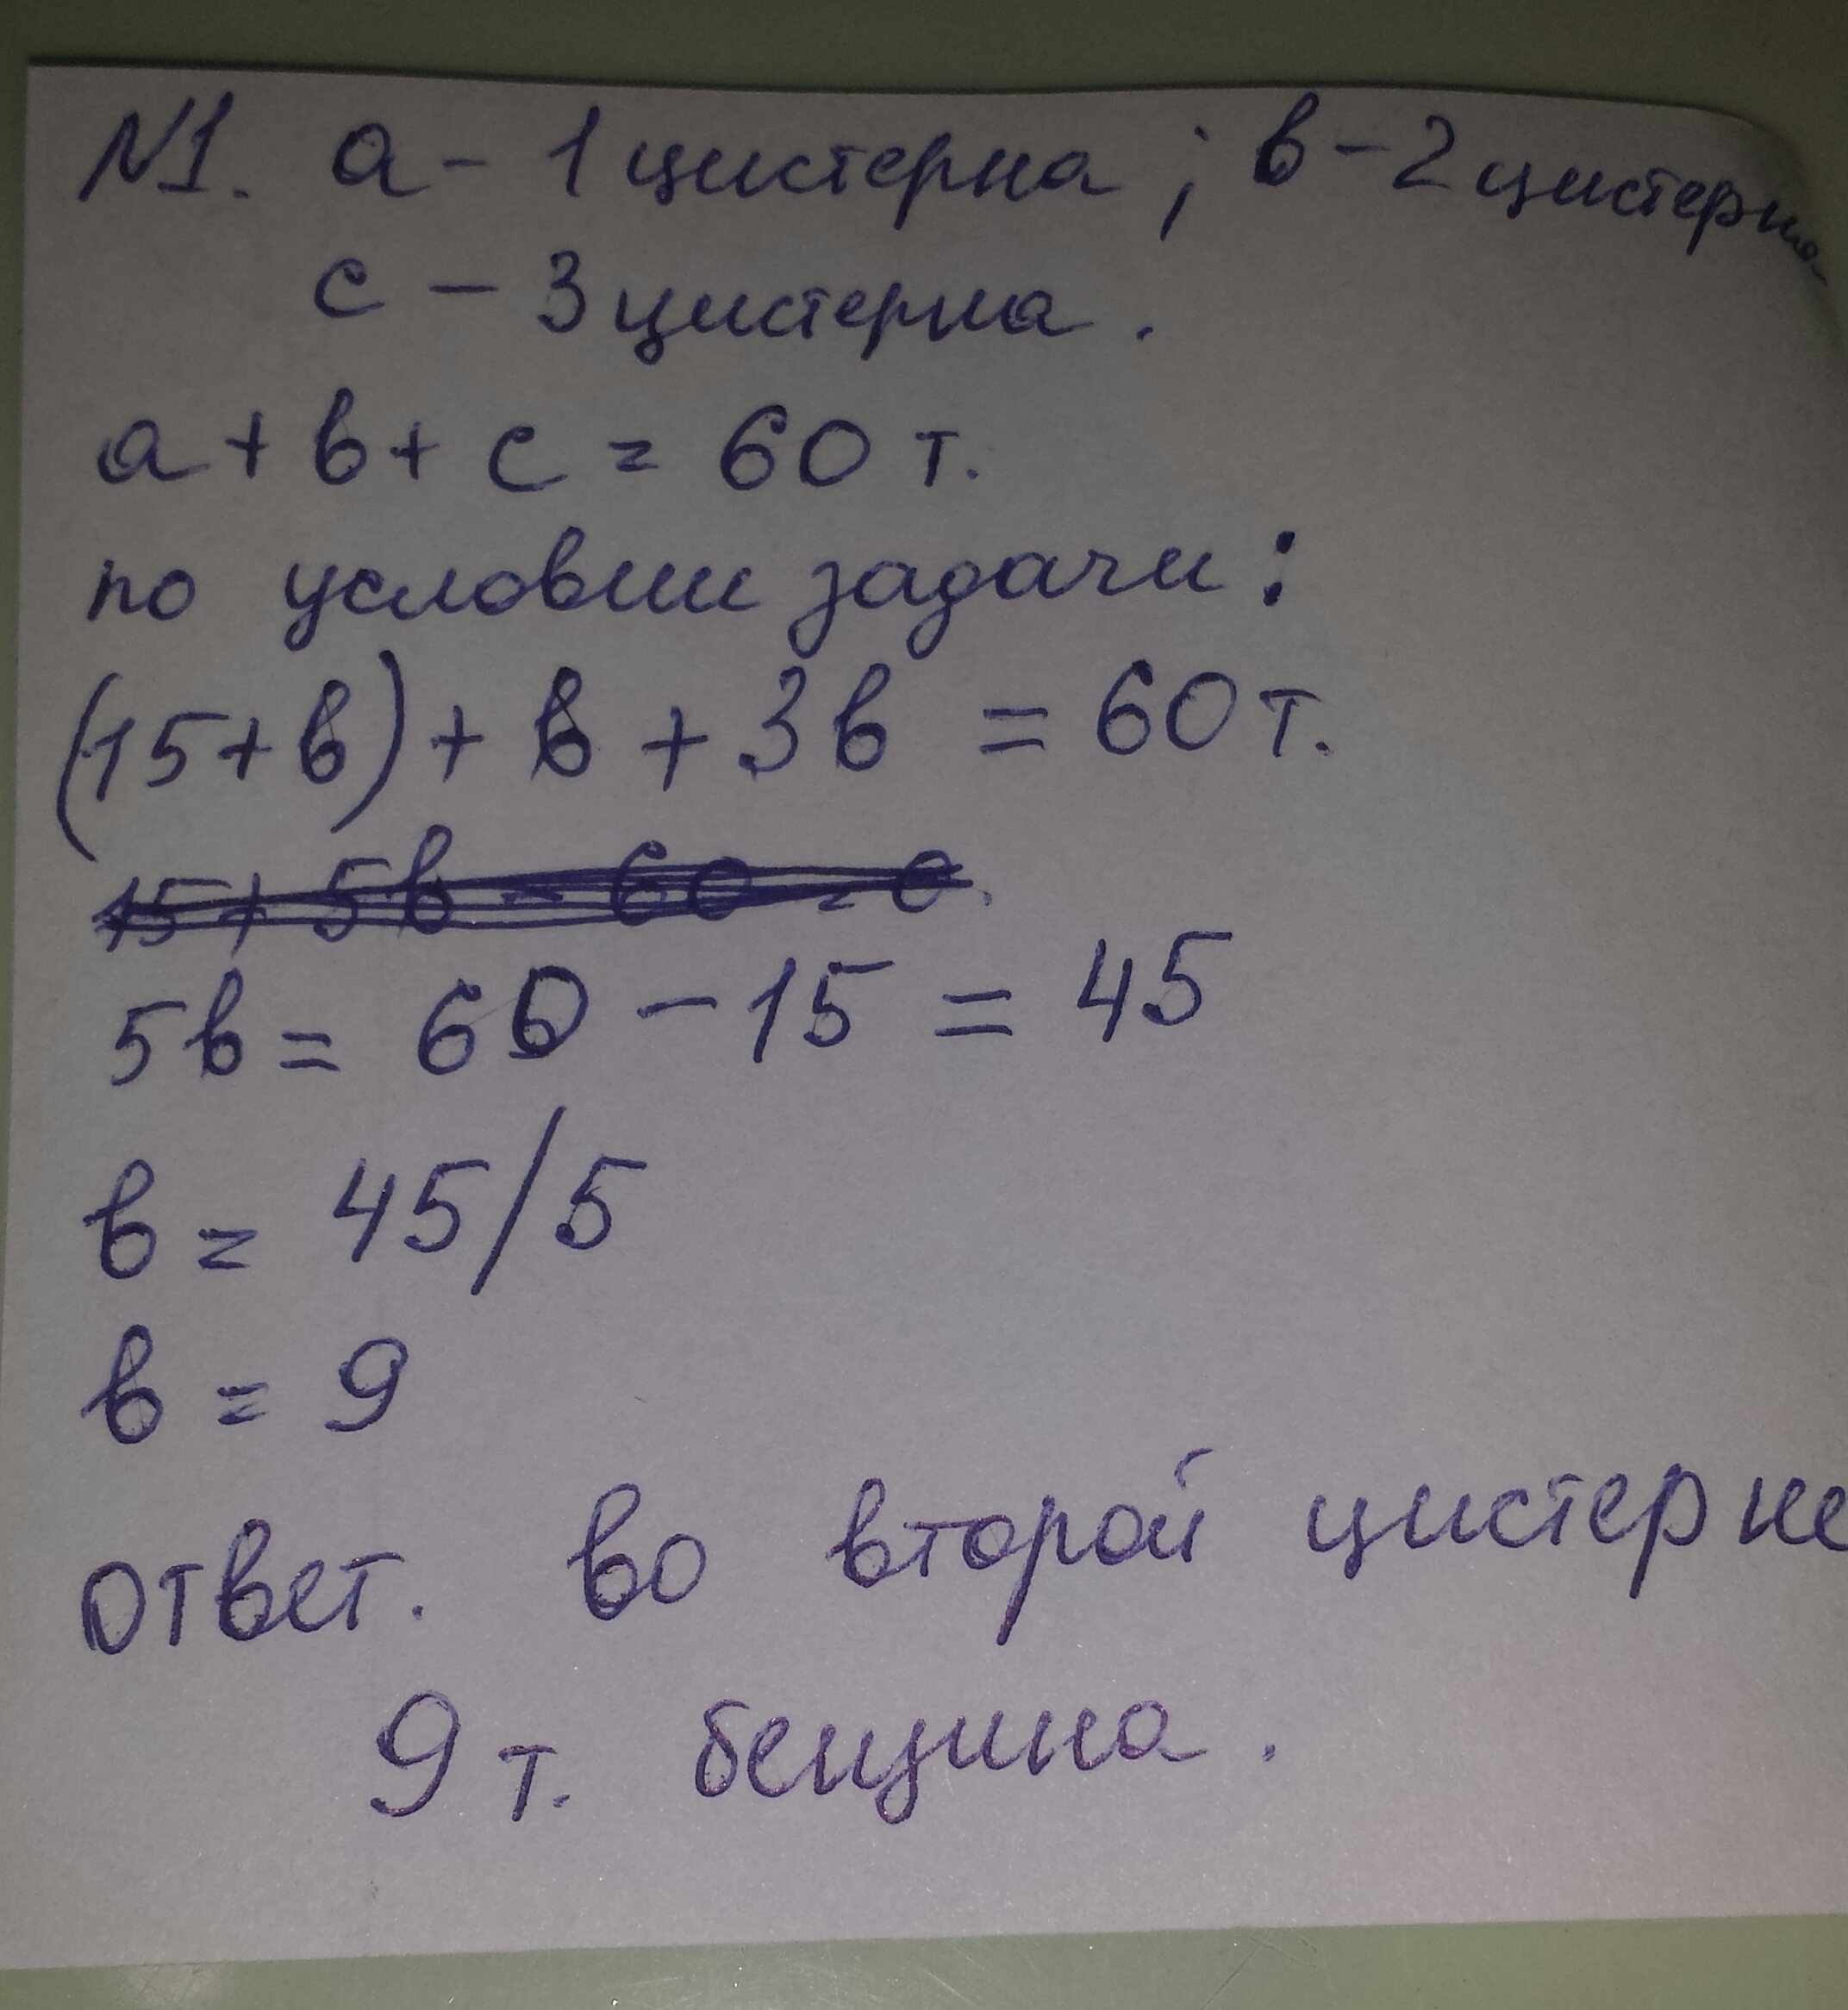 N1. a - 1 цистерна ; в - 2 цистерна
с - 3 цистерна.
a + в + с = 60 т.
по условии задачи:
(15 + в) + в + 3в = 60 т.
15 + 5в - 60 = 0.
5в = 60 - 15 = 45
в = 45/5
в = 9
Ответ. Во второй цистерне
9 т. бензина.